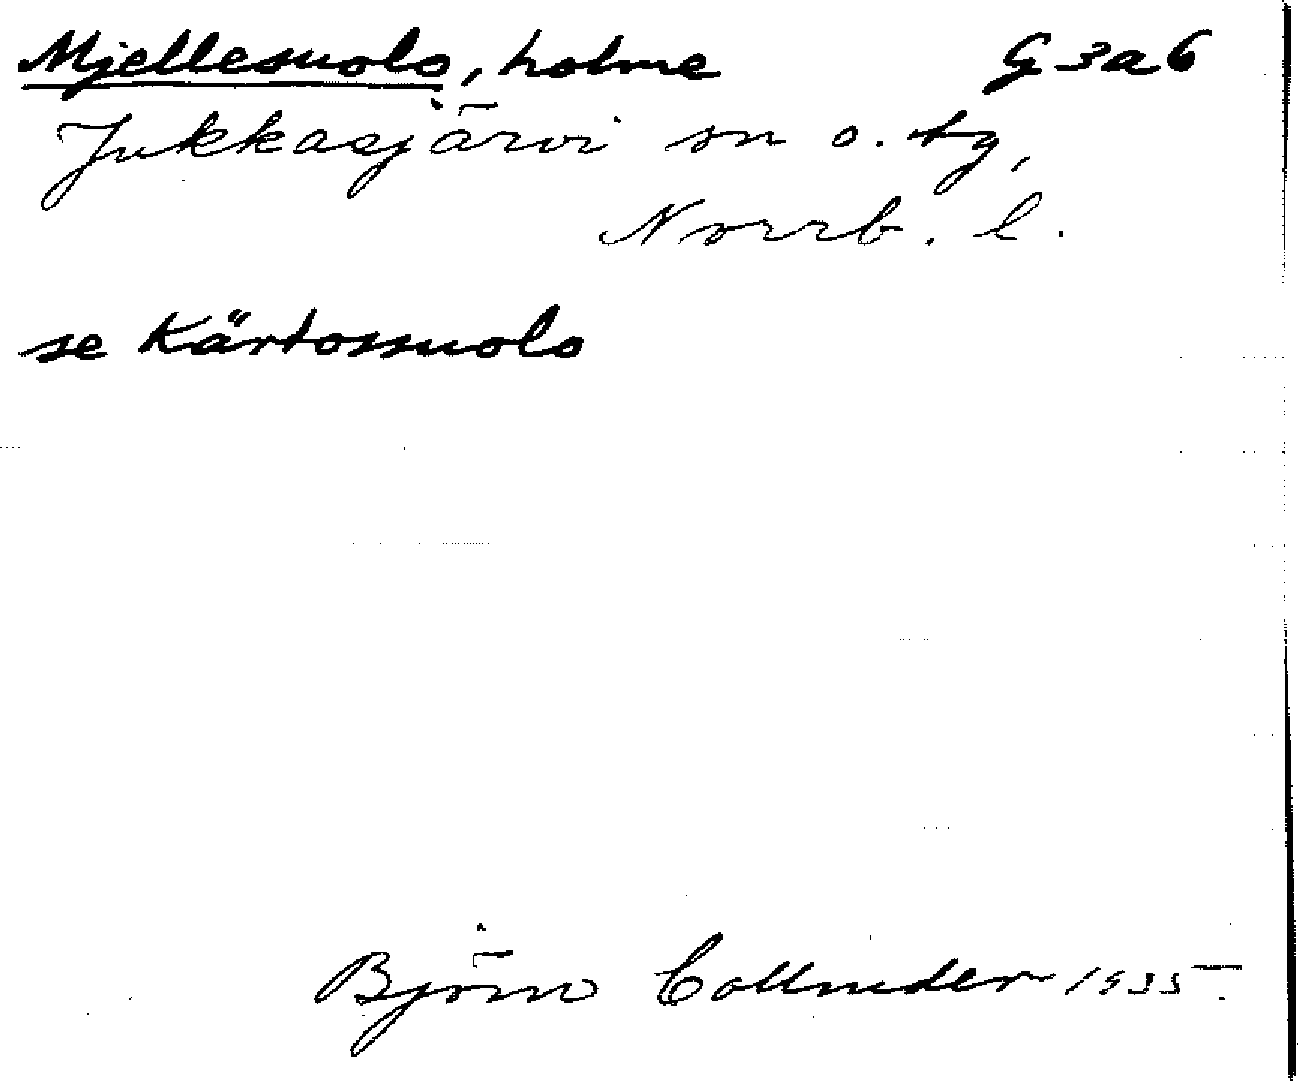 Mjellesuolo, holme G 3 a 6
Jukkasjärvi sn o. tg,
Norrb. l.
se Kärtossuolo
Björn Collinder 1935